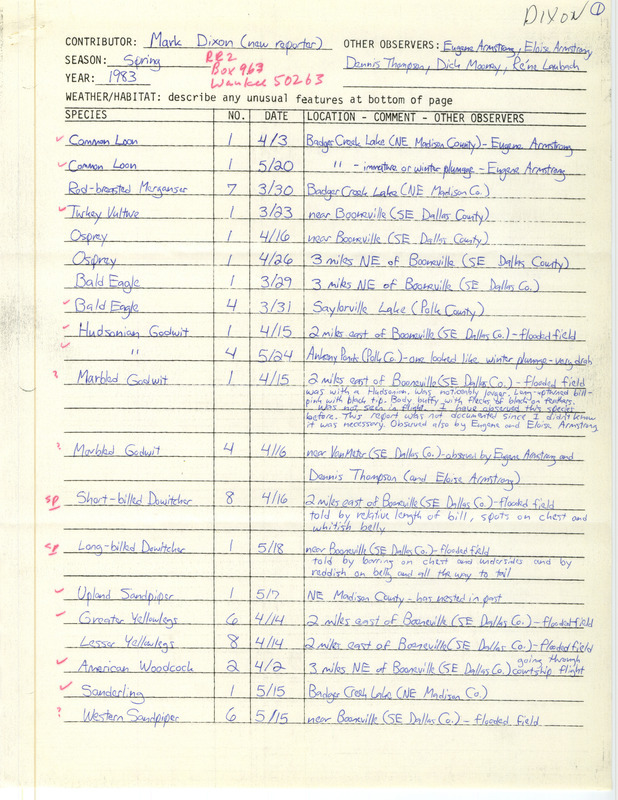 DIXON 1
CONTRIBUTOR: Mark Dixon (new reporter) OTHER OBSERVERS: Eugene Armstrong, Eloise Armstrong
SEASON: Spring RR2 Dennis Thompson, Dick Mooney, Rene Laubach
YEAR: 1983 Box 963
Waukee 50263
WEATHER/HABITAT: describe any unusual features at bottom of page
SPECIES NO. DATE LOCATION - COMMENT - OTHER OBSERVERS
✓ Common Loon 1 4/3 Badger Creek Lake (NE Madison County) - Eugene Armstrong
✓ Common Loon 1 5/20 " - immature or winter plumage - Eugene Armstrong
Red-breasted Merganser 7 3/30 Badger Creek Lake (NE Madison Co.)
✓ Turkey Vulture 1 3/23 near Booneville (SE Dallas County)
Osprey 1 4/16 near Booneville (SE Dallas County)
Osprey 1 4/26 3 miles NE of Booneville (SE Dallas County)
Bald Eagle 1 3/29 3 miles NE of Booneville (SE Dallas Co.)
✓ Bald Eagle 4 3/31 Saylorville Lake (Polk County)
✓ Hudsonian Godwit 1 4/15 2 miles east of Booneville (SE Dallas Co.) - flooded field
✓ " 4 5/24 Ankeny Ponds (Polk Co.) - one looked like winter plumage - very drab
? Marbled Godwit 1 4/15 2 miles east of Booneville (SE Dallas Co.) - flooded field
was with a Hudsonian. Was noticeably larger. Long upturned bill -
pink with black tip. Body buffy with flecks of black on feathers.
I was not seen in flight. I have observed this species
before. This report was not documented since I didn't know
it was necessary. Observed also by Eugene and Eloise Armstrong
? Marbled Godwit 4 4/16 near Van Meter (SE Dallas Co.) - observed by Eugene Armstrong and
Dennis Thompson (and Eloise Armstrong)
sp Short-billed Dowitcher 8 4/16 2 miles east of Booneville (SE Dallas Co.) - flooded field
told by relative length of bill, spots on chest and
whitish belly
sp Long-billed Dowitcher 1 5/18 near Booneville (SE Dallas Co.) - flooded field
told by barring on chest and undersides and by
reddish on belly and all the way to tail
✓ Upland Sandpiper 1 5/7 NE Madison County - has nested in past
✓ Greater Yellowlegs 6 4/14 2 miles east of Booneville (SE Dallas Co.) - flooded field
Lesser Yellowlegs 8 4/14 2 miles east of Booneville (SE Dallas Co.) - flooded field
✓ American Woodcock 2 4/2 3 miles NE of Booneville (SE Dallas Co.) going through courtship flight
✓ Sanderling 1 5/15 Badger Creek Lake (NE Madison Co.)
? Western Sandpiper 6 5/15 near Booneville (SE Dallas Co.) - flooded field